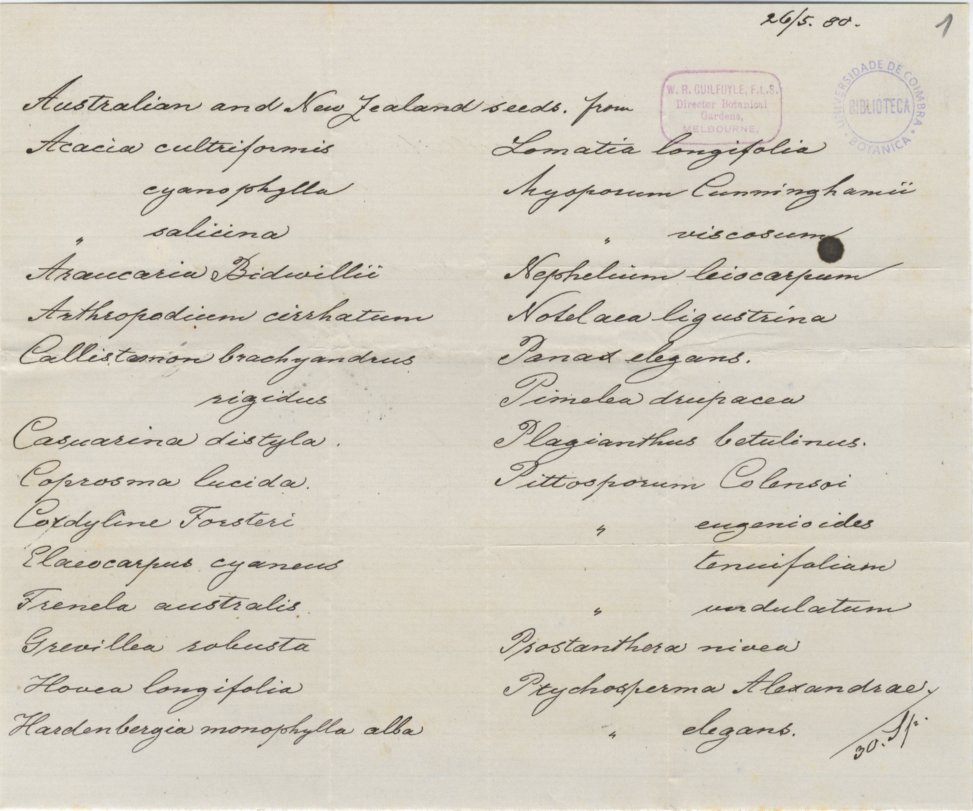 26/5. 80.
1
Australian and New Zealand seeds. from
W. R. GUILFOYLE, F.L.S.
Director Botanical
Gardens,
MELBOURNE,
UNIVERSIDADE DE COIMBRA
BIBLIOTECA
BOTANICA
Acacia cultriformis
cyanophylla
" salicina
Araucaria Bidwillii
Arthropodium cirrhatum
Callistemon brachyandrus
rigidus
Casuarina distyla.
Coprosma lucida.
Cordyline Forsteri
Elaeocarpus cyaneus
Frenela australis.
Grevillea robusta
Hovea longifolia
Hardenbergia monophylla alba
Lomatia longifolia
Myoporum Cunninghamii
" viscosum
Nephelium leiocarpum
Notelaea ligustrina
Panax elegans.
Pimelea drupacea
Plagianthus betulinus.
Pittosporum Colensoi
" eugenioides
tenuifolium
" undulatum
Prostanthera nivea
Ptychosperma Alexandrae,
" elegans.
30. Sp.